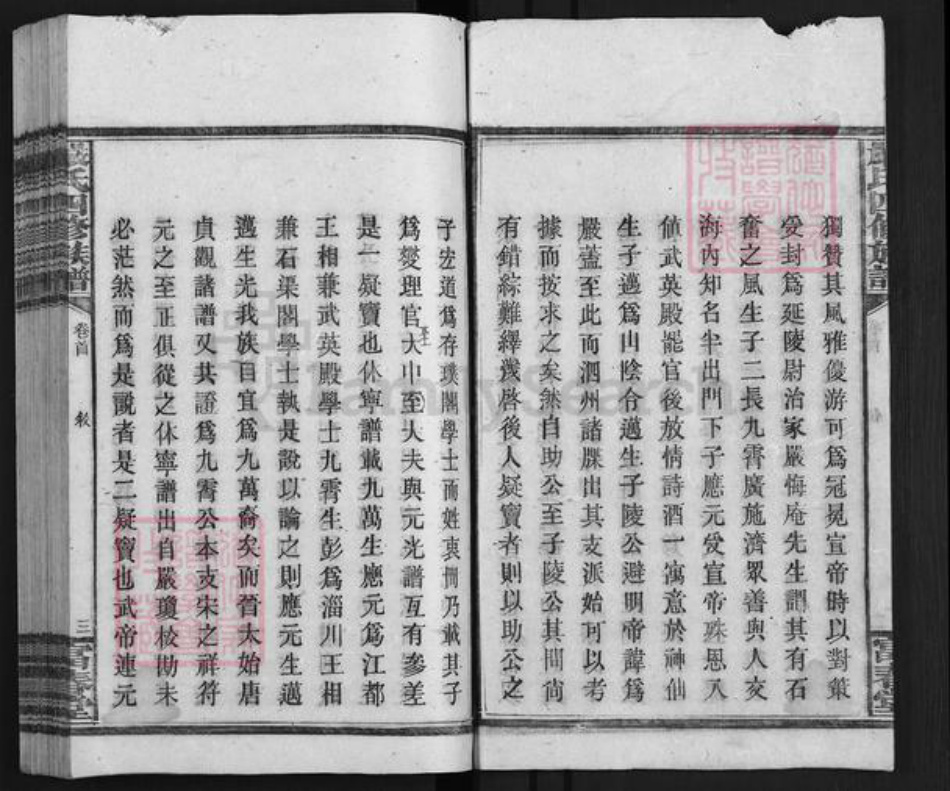 獨贊其風雅優游可爲冠冕宣帝時以對策
受封爲延陵尉治家嚴悔庵先生謂其有石
奮之風生子二長九霄廣施濟眾善與人交
海內知名半出門下子應元受宣帝殊恩入
値武英殿罷官後放情詩酒一寓意於神仙
生子邁爲山陰令邁生子陵公避明帝諱爲
嚴蓋至此而泗州諸牒出其支派始可以考
據而按求之矣然自助公至子陵公其間尙
有錯綜難繹幾啓後人疑竇者則以助公之
子宏道爲存璞閣學士而姓衷冊乃載其子
爲燮理官大中至大夫與元光譜互有參差
至
是一疑竇也休寧譜載九萬生應元爲江都
王相兼武英殿學士九霄生彭爲淄川王相
兼石渠閣學士執是說以論之則應元生邁
邁生光我族目宜爲九萬裔矣而晉太始唐
貞觀諸譜又共證爲九霄公本支宋之祥符
元之至正俱從之休寧譜出自嚴瓊校勘未
必茫然而爲是說者是二疑竇也武帝連元
嚴氏四修族譜
卷首
敘
三
富春堂
FamilySearch